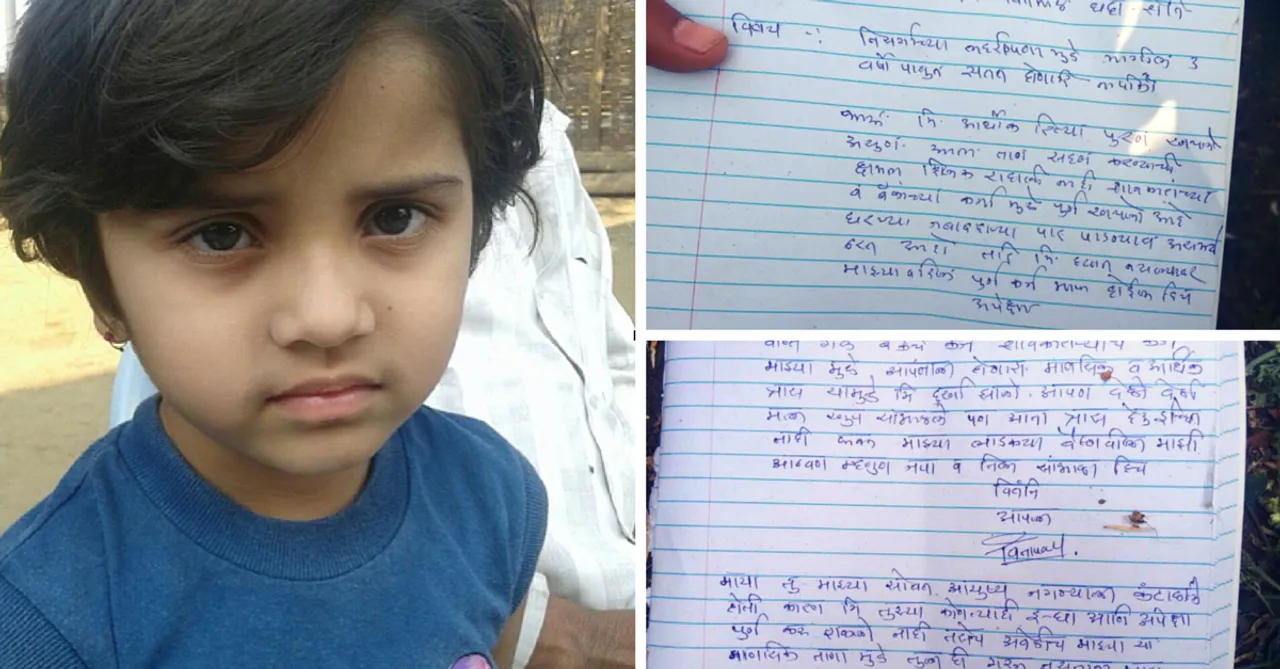 विषय -: निसर्गाच्या लहरीपणा मुळे मागील 3
वर्षा पासुन सतत होणारि नापीकी
कारण मि आर्थीक रित्या पुर्ण खचलो
असुन आता ताण सहण करण्याची
क्षमता शिल्लक राहाली नाही सावकारांच्या
व बँकांच्या कर्जा मुळे पुर्ण खचलो आहे
घरच्या जबाबदाऱ्या पार पाडण्यास असमर्थ
ठरत आहो तरि मि
माझ्या वडिलां पुर्ण कर्ज माफ होईल हिच
अपेक्षा
माझ्या मुळे आपणाला होणारा मानसिक व आर्थिक
त्रास यामुळे मि दुखी झालो. आपण दोघे
मला खुप सांभाळले पण माझा त्रास
नाही फक्त माझ्या लाडक्या वैष्णवीला माझी
आठवण म्हणुण जपा व तिला सांभाळा हिच
विनंती
आपला
माया तु माझ्या सोबत आयुष्य जगन्याला कंटाळली
होती कारण मि तुझ्या कोनत्याही इच्छा आणि अपेक्षा
पुर्ण करु शकलो नाही तसेच माझ्या या
मानसिक ताणा मुळे तुला ही